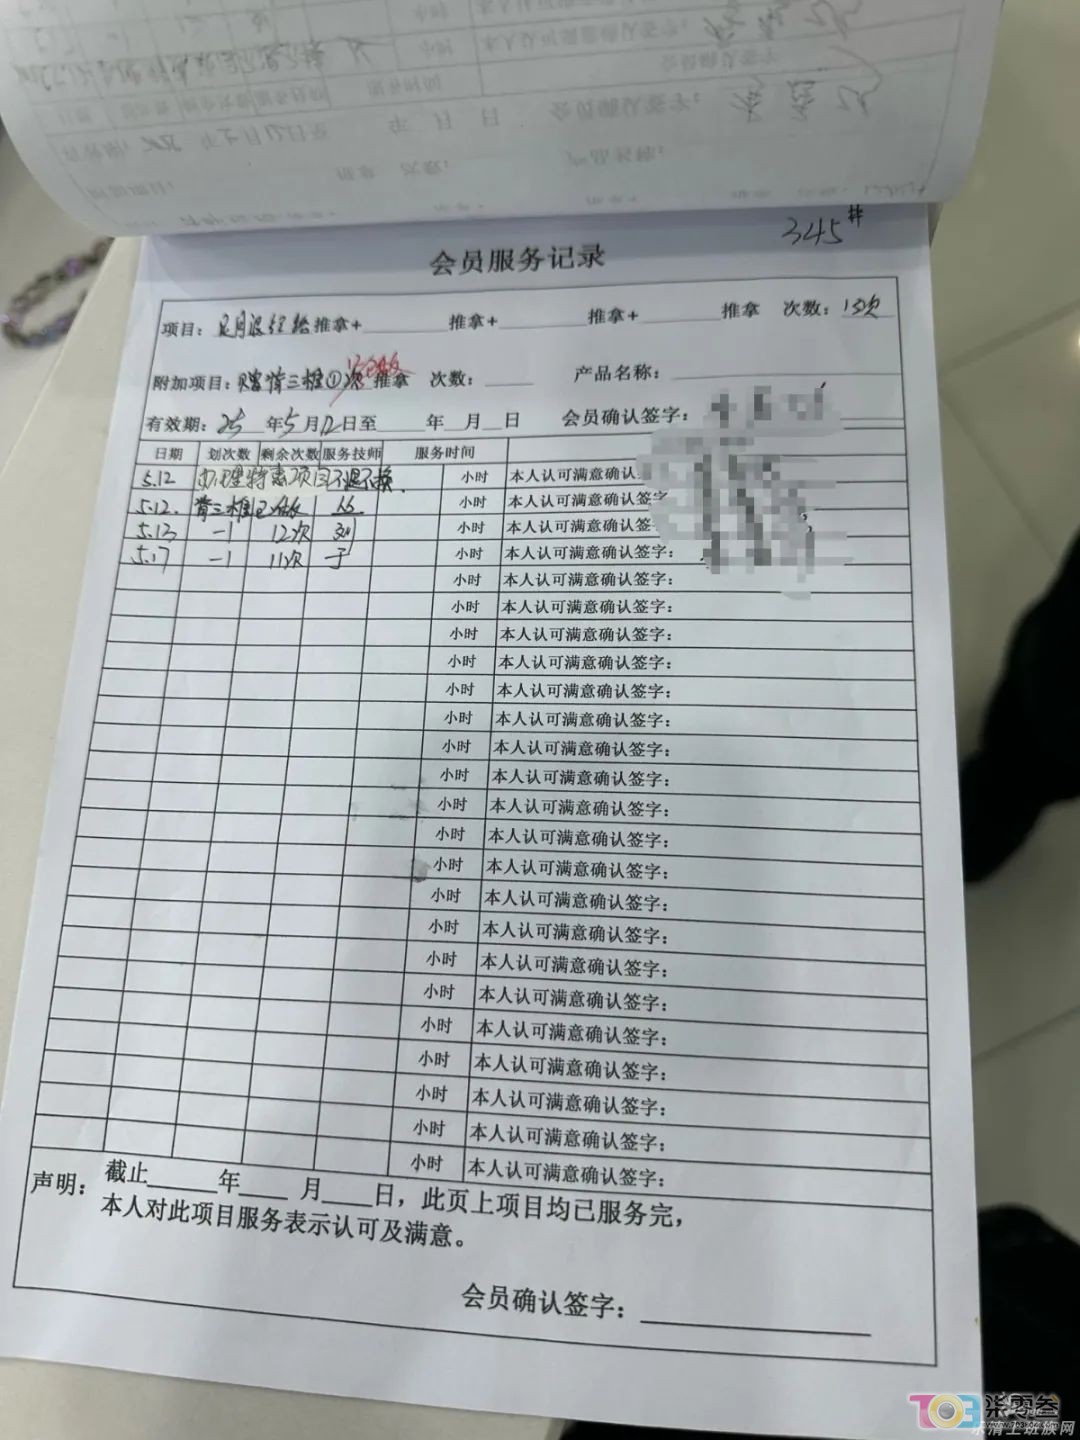 345#
会员服务记录
项目： 推拿+ 推拿+ 推拿+ 推拿 次数：13次
附加项目：赠背三椎①次 推拿 次数： 产品名称：
有效期：25年5月12日至 年 月 日 会员确认签字：
日期 划次数 剩余次数 服务技师 服务时间
5.12 办理特惠项目不退不换. 小时 本人认可满意确认
5.12. 背三椎已做 小时 本人认可满意确认签字
5.13 -1 12次 刘 小时 本人认可满意确认签字：
5.17 -1 11次 于 小时 本人认可满意确认签字：
小时 本人认可满意确认签字：
小时 本人认可满意确认签字：
小时 本人认可满意确认签字：
小时 本人认可满意确认签字：
小时 本人认可满意确认签字：
小时 本人认可满意确认签字：
小时 本人认可满意确认签字：
小时 本人认可满意确认签字：
小时 本人认可满意确认签字：
小时 本人认可满意确认签字：
小时 本人认可满意确认签字：
小时 本人认可满意确认签字：
小时 本人认可满意确认签字：
小时 本人认可满意确认签字：
小时 本人认可满意确认签字：
小时 本人认可满意确认签字：
小时 本人认可满意确认签字：
小时 本人认可满意确认签字：
小时 本人认可满意确认签字：
小时 本人认可满意确认签字：
声明：截止 年 月 日，此页上项目均已服务完，
本人对此项目服务表示认可及满意。
会员确认签字：
703 柒零叁
乐清上班族网